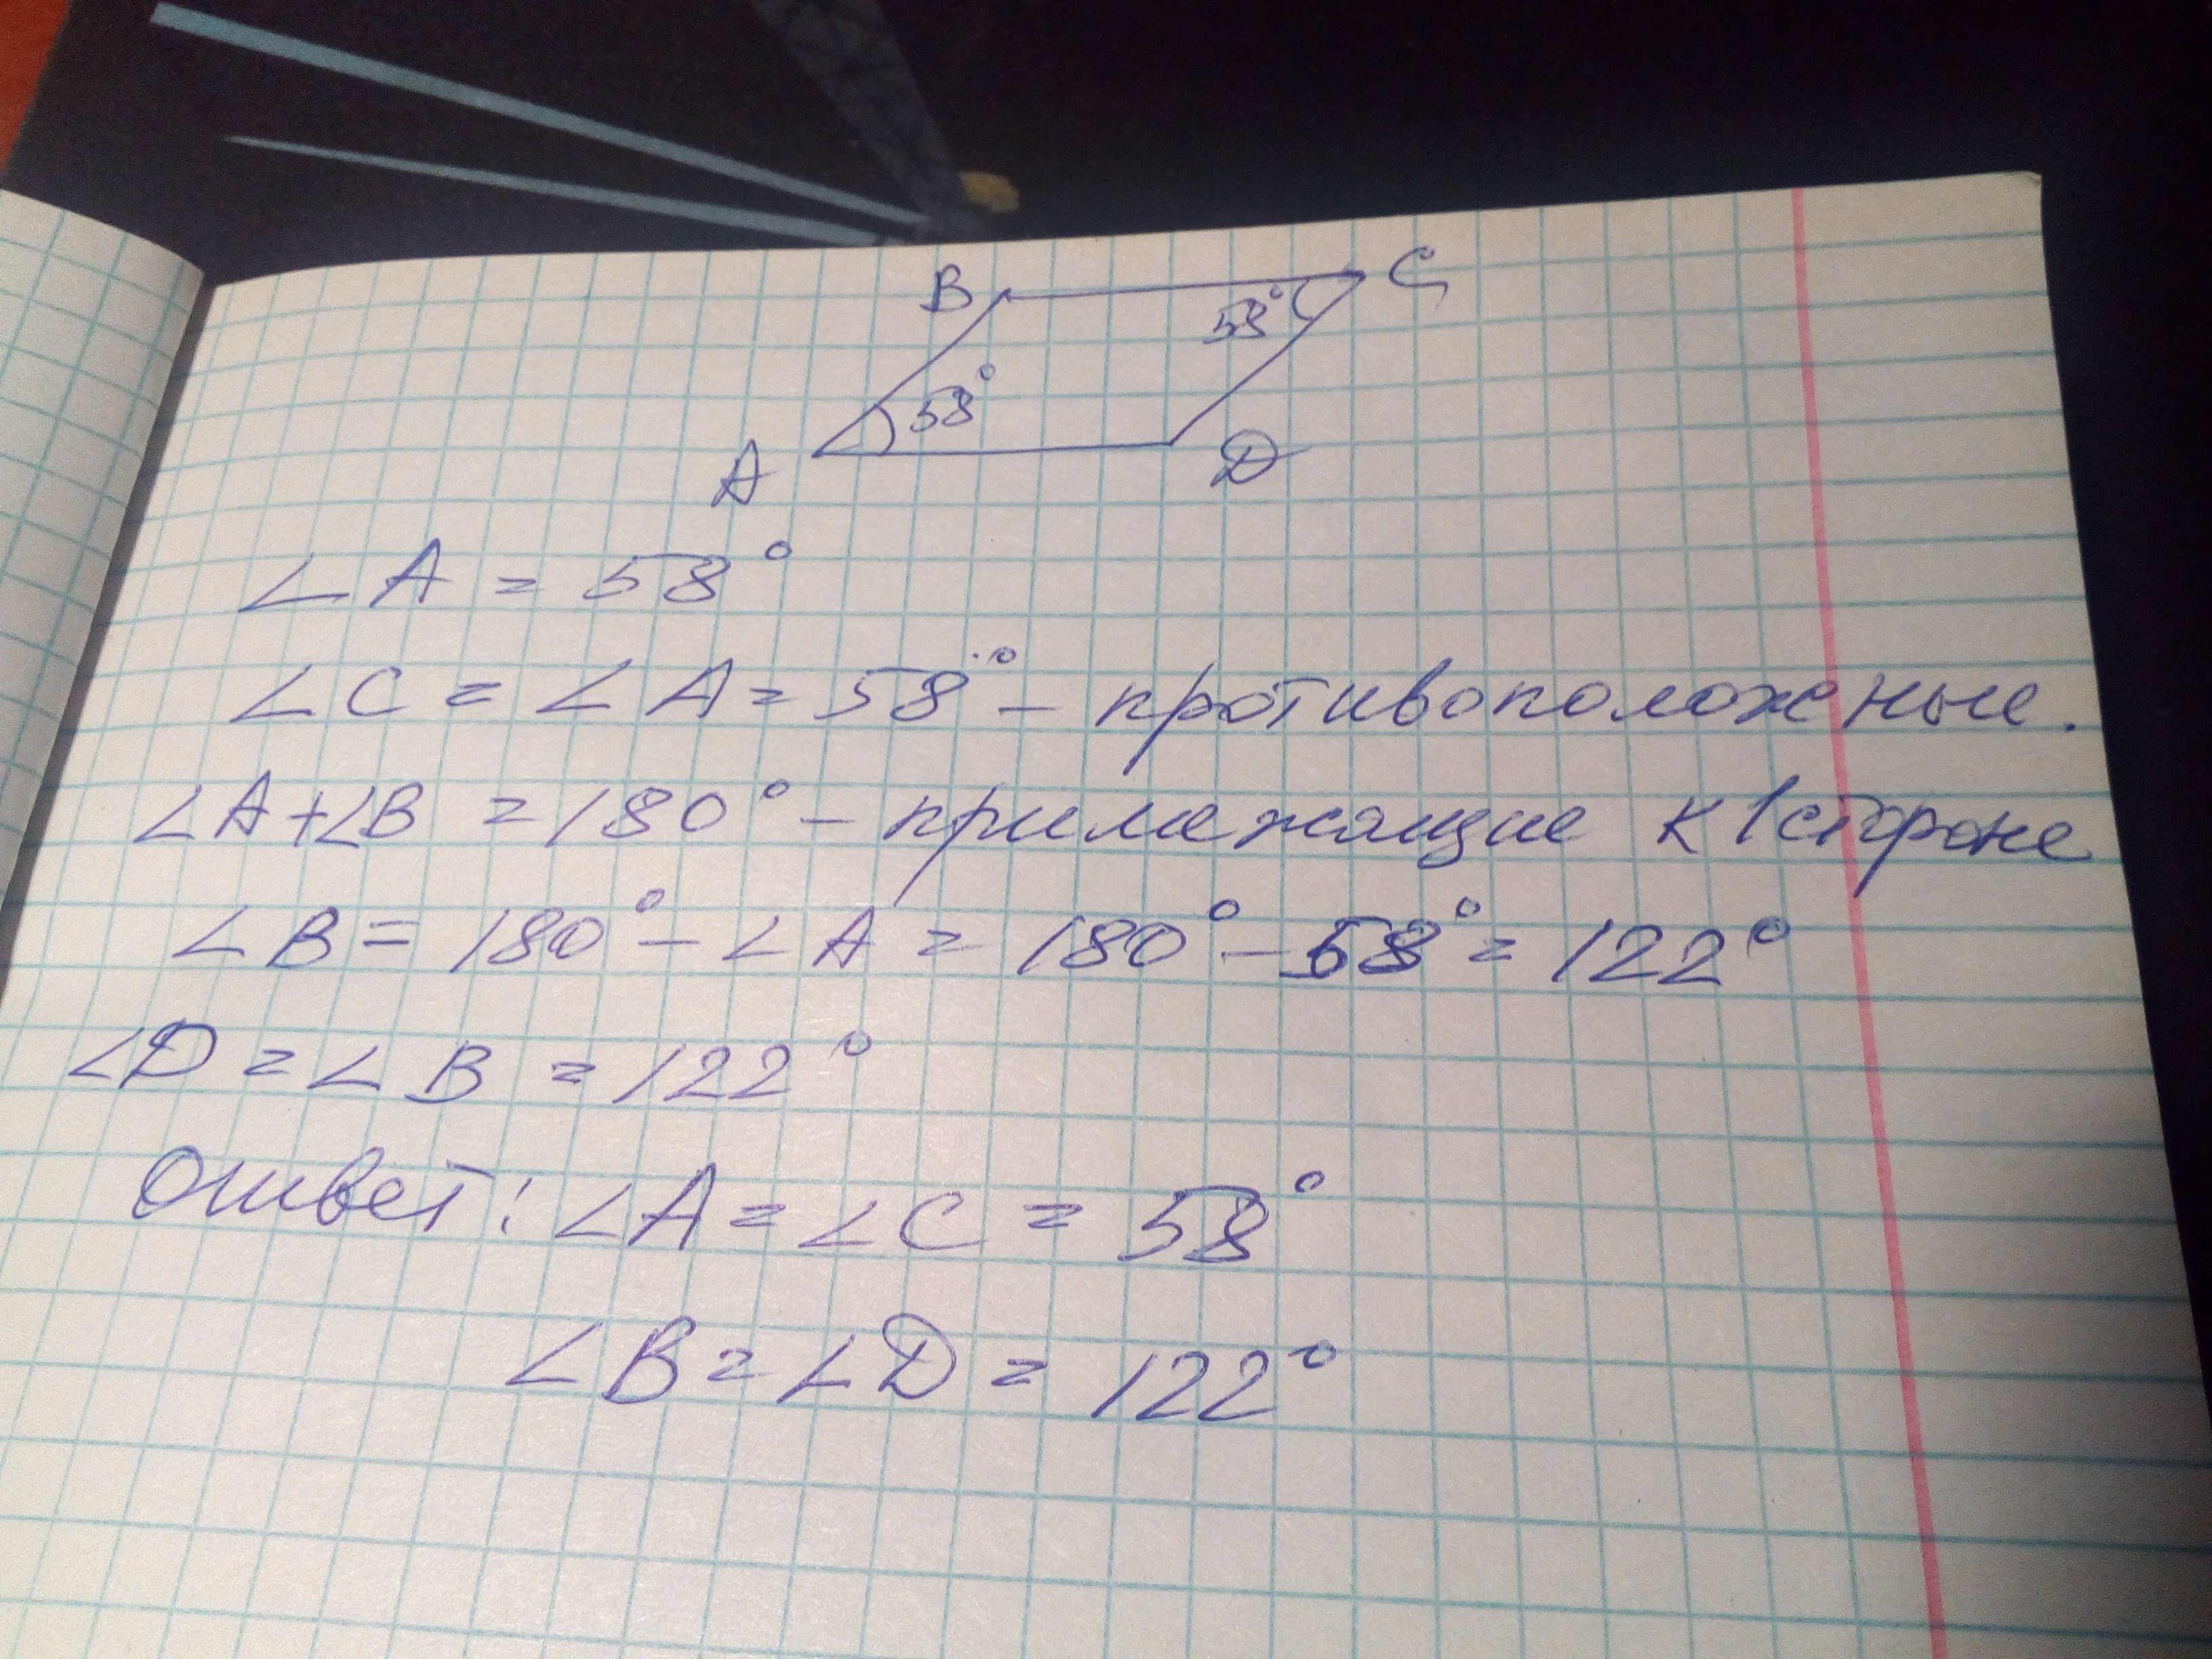 B C
58°
58°
A D
∠A = 58°
∠C = ∠A = 58° – противоположные.
∠A+∠B = 180° – прилежащие к 1 стороне
∠B = 180° – ∠A = 180° – 58° = 122°
∠D = ∠B = 122°
Ответ: ∠A = ∠C = 58°
∠B = ∠D = 122°